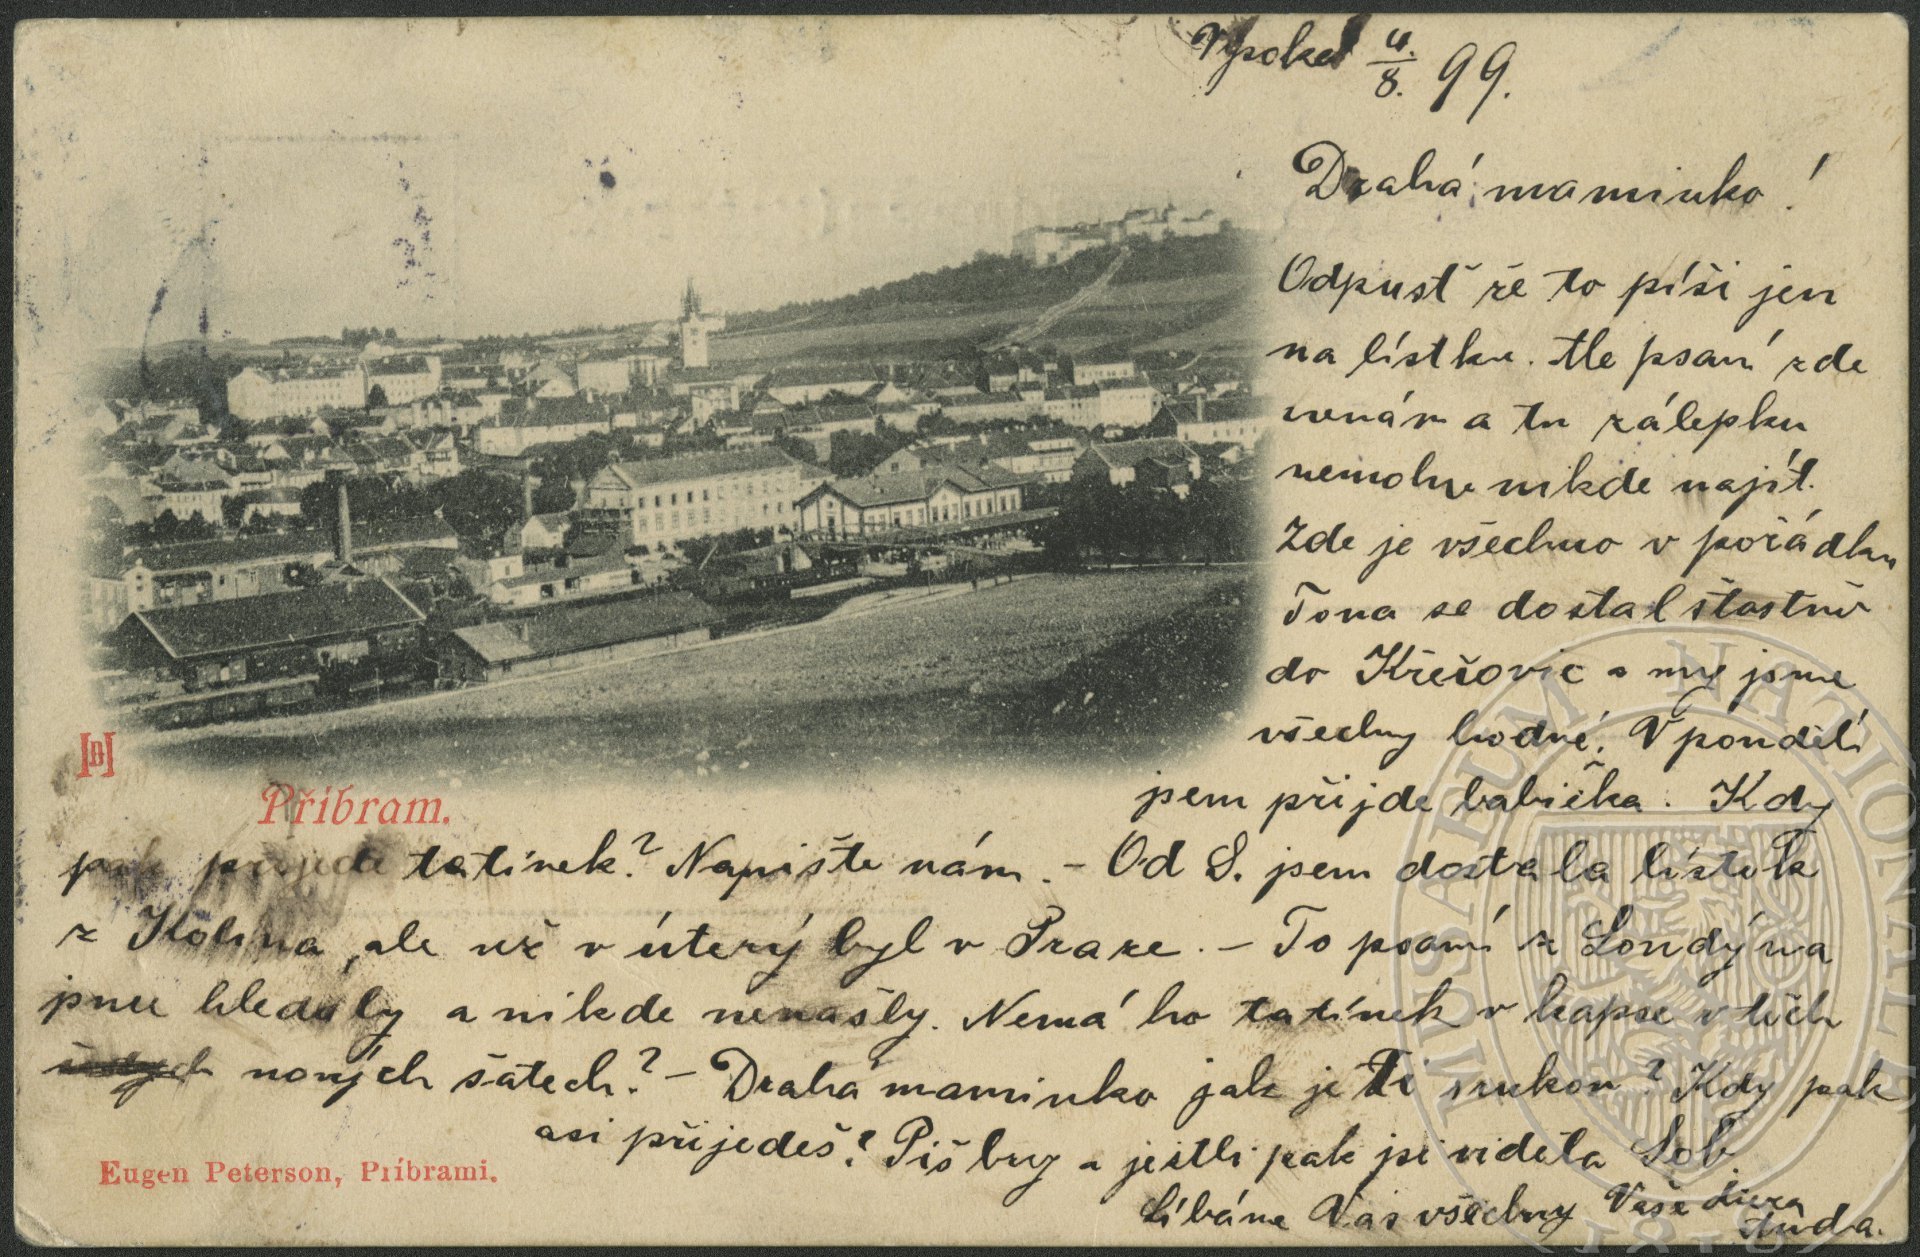 Vysoká 4./8. 99.
Drahá maminko!
Odpusť že to píši jen
na lístku. Ale psaní zde
nemám a tu zálepku
nemohu nikde najít.
Zde je všechno v pořádku
Tona se dostal šťastně
do Křešovic a my jsme
všechny hodné. V pondělí
jsem přijde babička. Kdy
pak přijede tatínek? Napište nám. – Od S. jsem dostala lístek
z Kolína, ale už v úterý byl v Praze. – To psaní z Londýna
jsme hledaly a nikde nenašly. Nemá ho tatínek v kapse v těch
nových šatech? – Drahá maminko jak je Ti s rukou? Kdy pak
asi přijedeš? Piš brzy a jestli pak jsi viděla Sob.
Líbáme Vás všechny Vaše
Anda.
HD
Příbram.
Eugen Peterson, Príbrami.
MUSAEUM NATIONALE
1818